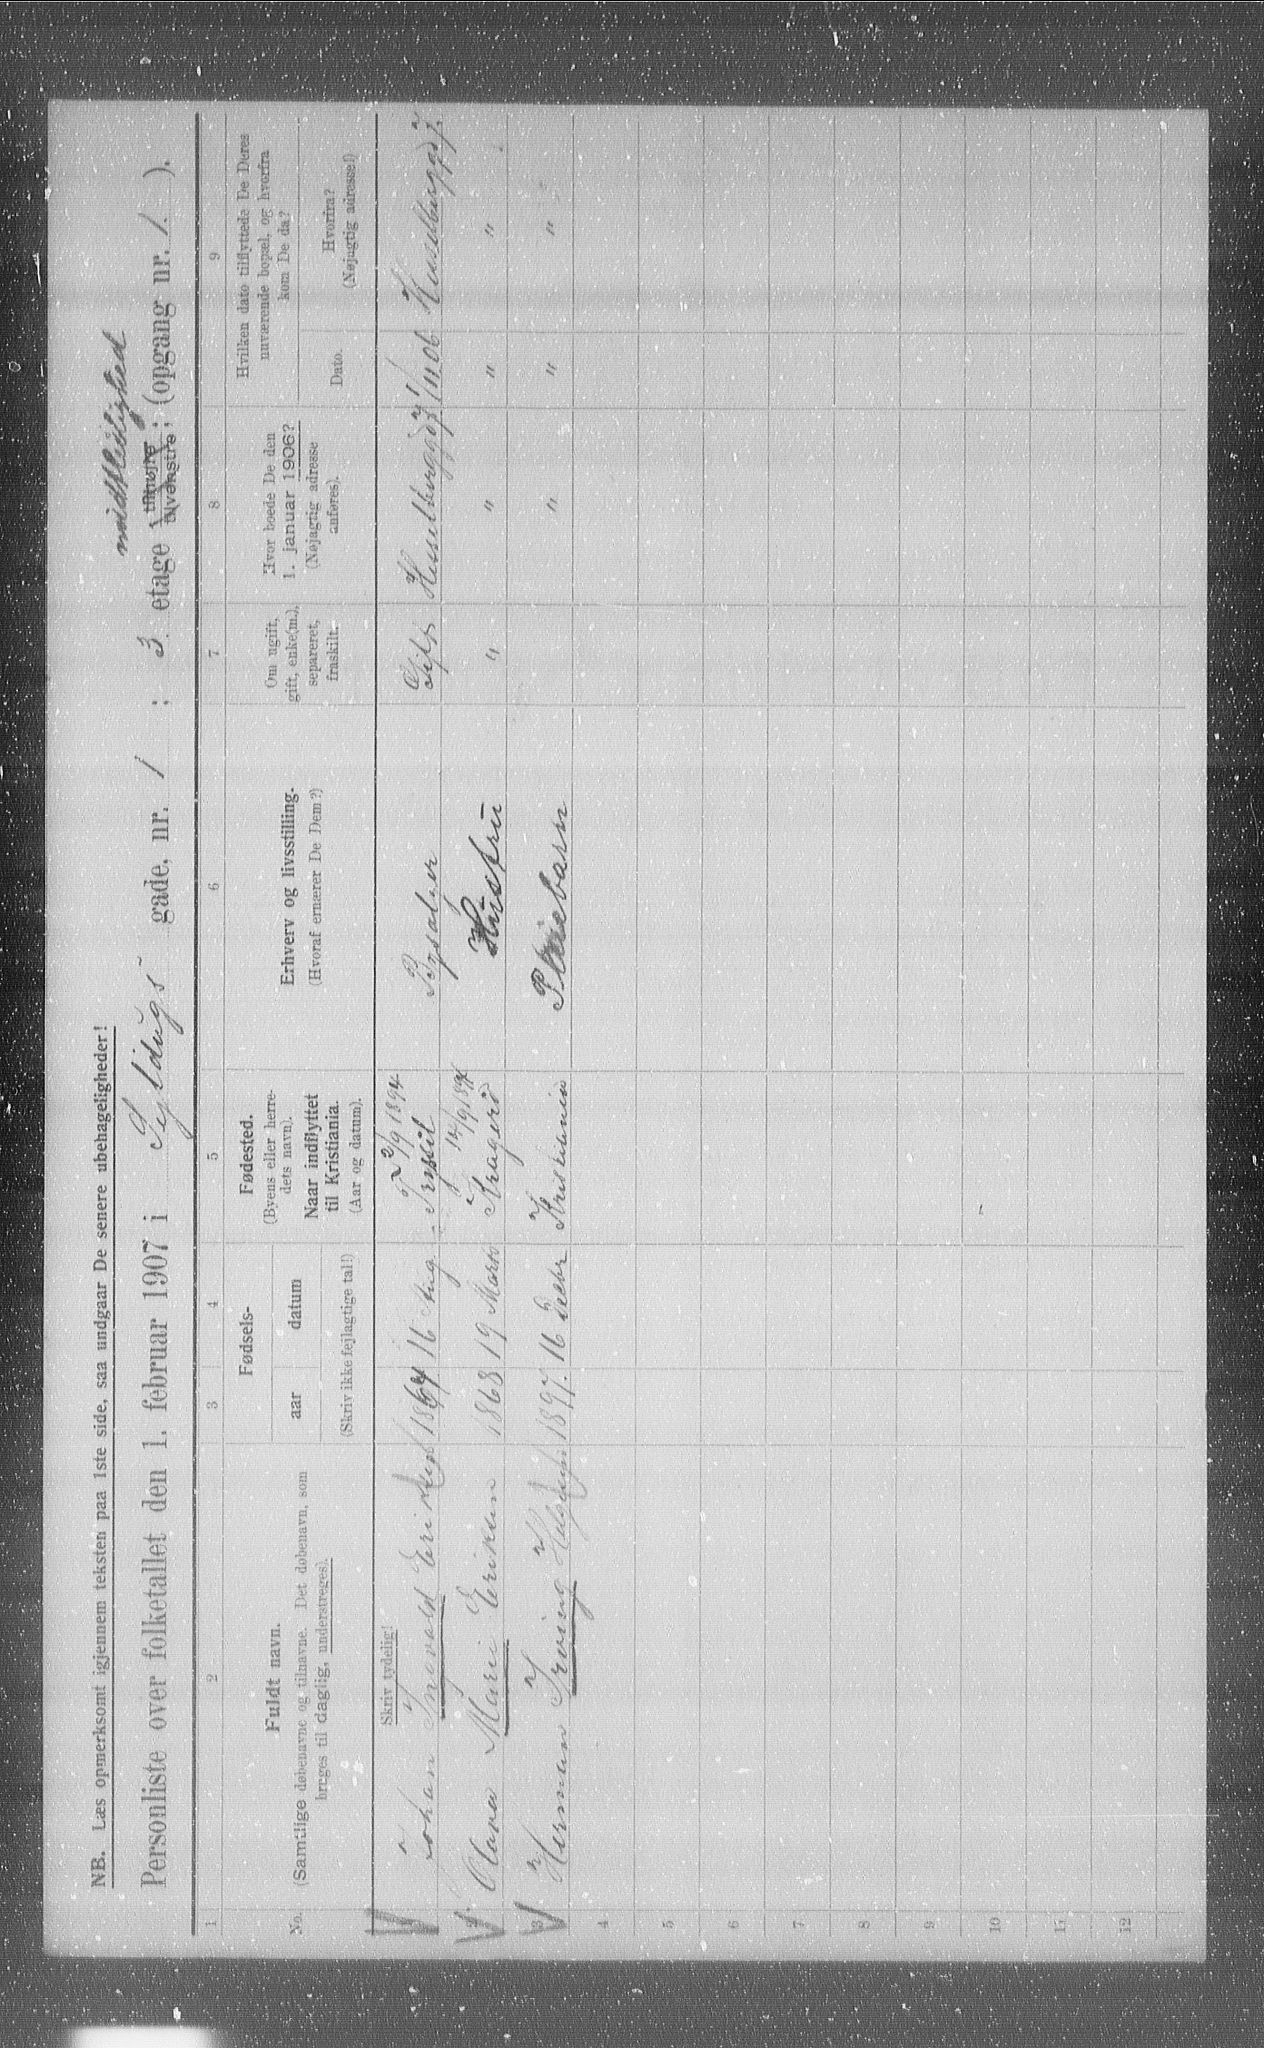 NB. Læs opmerksomt igjennem teksten paa 1ste side, saa undgaar De senere ubehageligheder!
midtleilighed
Personliste over folketallet den 1. februar 1907 i Sejldugs gade, nr. 1 ; 3 etage tilhøjre tilvenstre; (opgang nr. 1. ).
1 2 3 4 5 6 7 8 9
No.
Fuldt navn.
(Samtlige døbenavne og tilnavne. Det døbenavn, som
bruges til daglig, understreges).
Fødsels-
aar datum
(Skriv ikke fejlagtige tal!)
Fødested.
(Byens eller herre-
dets navn).
Naar indflyttet
til Kristiania.
(Aar og datum).
Erhverv og livsstilling.
(Hvoraf ernærer De Dem?)
Om ugift,
gift, enke(m.),
separeret,
fraskilt.
Hvor boede De den
1. januar 1906?
(Nøjagtig adresse
anføres).
Hvilken dato tilflyttede De Deres
nuværende bopæl, og hvorfra
kom De da?
Dato.
Hvorfra?
(Nøjagtig adresse!)
Skriv tydelig!
1 Johan Ingvald Eriksen 1864 16 Aug. Trysil 2/9 1894 Gift Hesselberggd 7
2 Olava Marie Eriksen 1868 19 Marts Kragerø Hustru " " " "
3 Herman Irving 1897. 16 Decbr Kristiania " " "
4
5
6
7
8
9
10
11
12